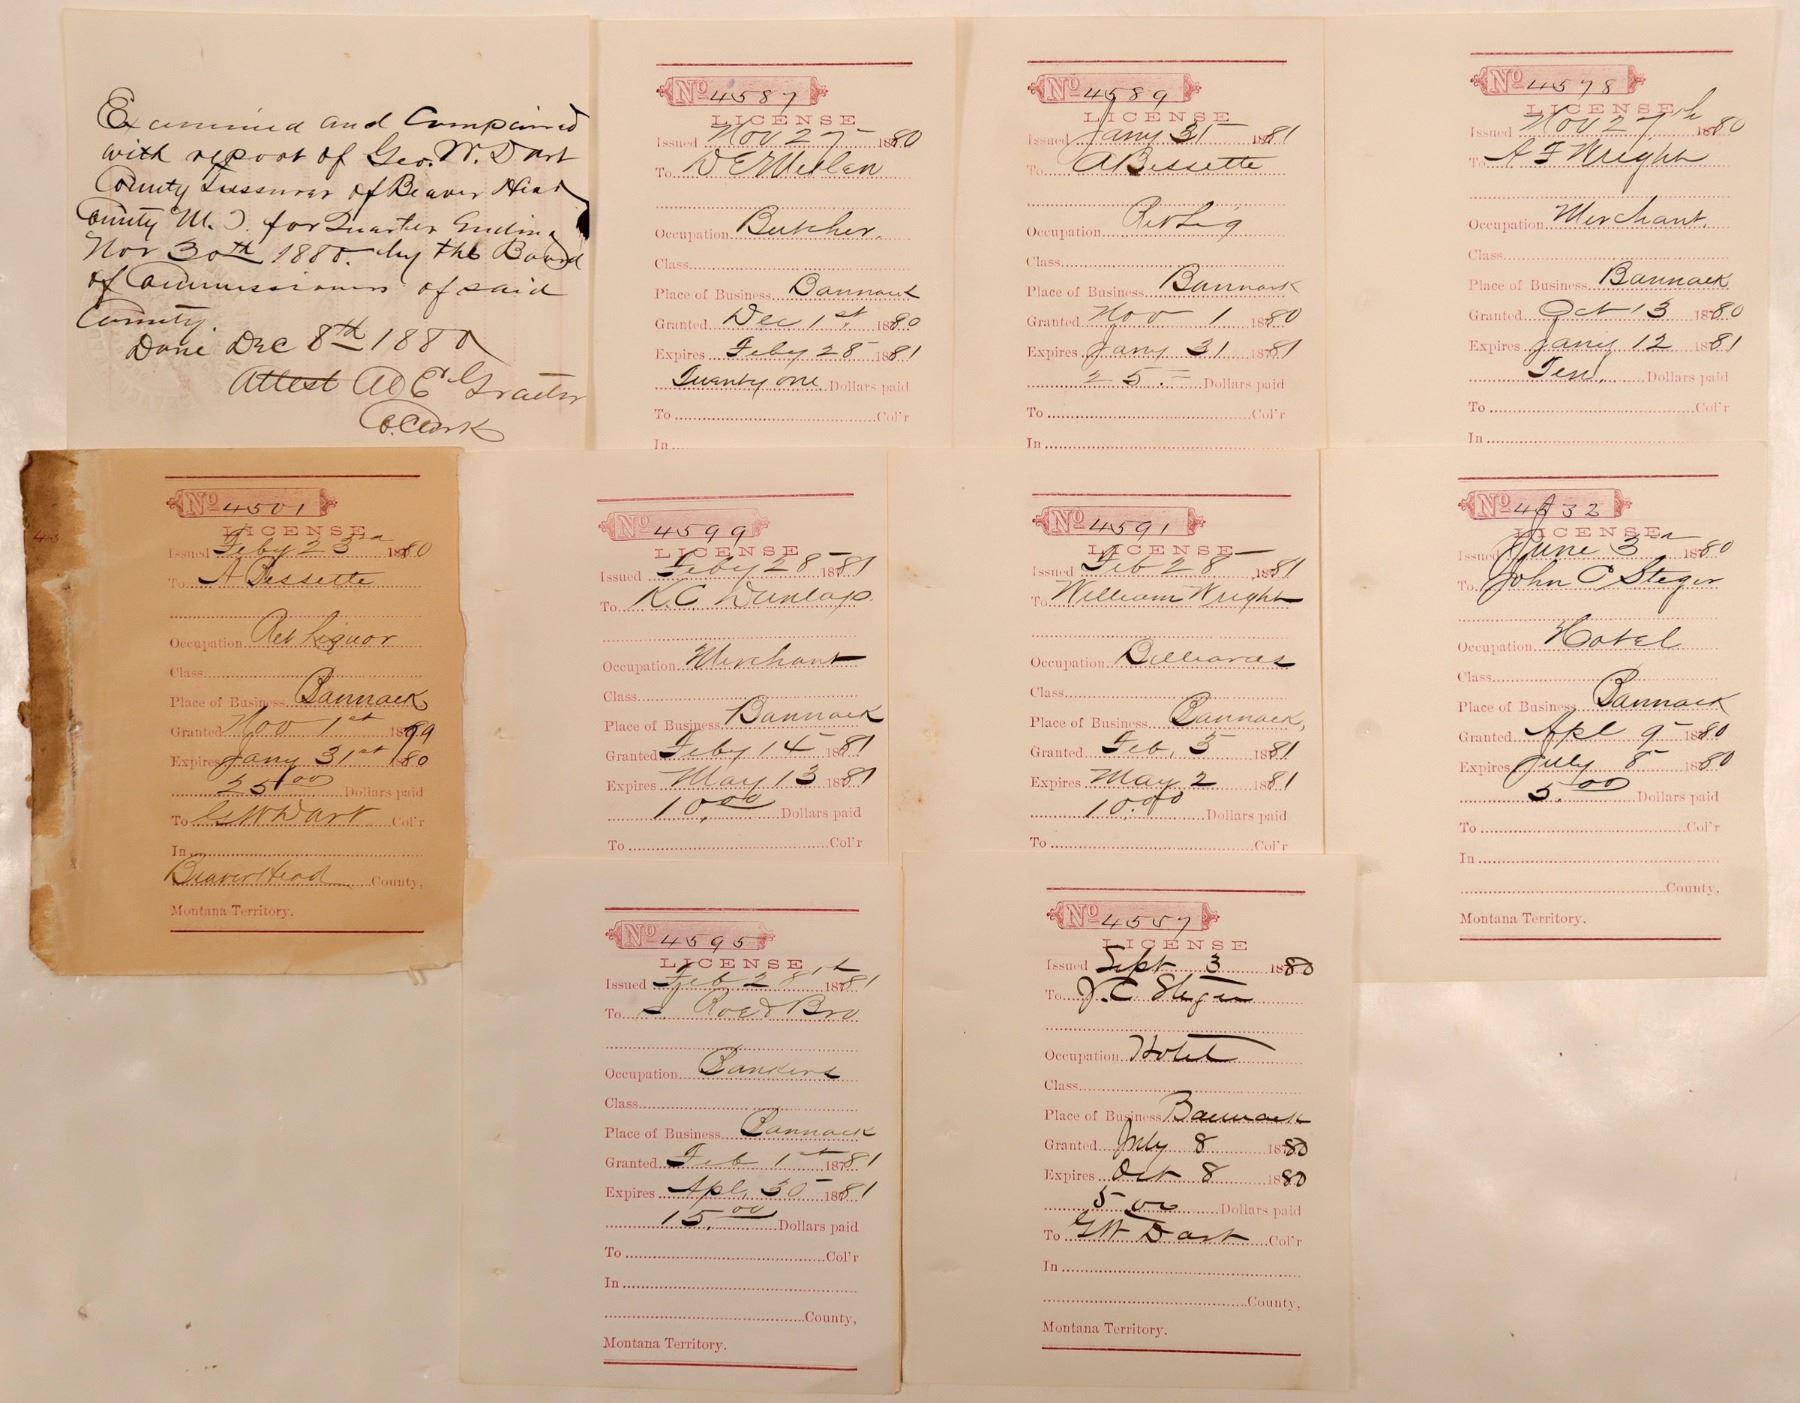 Examined and Compaired
with report of Geo. W. Dart
County Tressurer of Beaver Head
County M. T. for Quarter Ending
Nov 30th 1880. by the Board
of Commissioners of said
County.
Done Dec 8th 1880
Attest A C Graeter
C. Clerk
No 4587
LICENSE
Issued Nov 27 1880
To D E Metlen
Occupation Butcher.
Class
Place of Business Bannack
Granted Dec 1st, 1880
Expires Feby 28 1881
Twenty one Dollars paid
To Col'r
In
No 4589
LICENSE
Issued Jany 31 1881
To A Bessette
Ret Lig
Occupation
Class
Place of Business Bannack
Granted Nov 1 1880
Expires Jany 31 1881
25.= Dollars paid
To Col'r
In
No 4578
LICENSE
Issued Nov 27th 1880
To A F Wright
Occupation Merchant.
Class
Place of Business Bannack
Granted Oct 13 1880
Expires Jany 12 1881
Ten. Dollars paid
To Col'r
In
No 4501
LICENSE
Issued Feby 23d 1880
To A Bessette
Occupation Ret Liquor
Class
Place of Business Bannack
Granted Nov 1st 1879
Expires Jany 31st 1880
25.00 Dollars paid
To G W Dart Col'r
In
Beaver Head County,
Montana Territory.
No 4599
LICENSE
Issued Feby 28 1881
To K. C Dunlap.
Occupation Merchant
Class
Place of Business Bannack
Granted Feby 14 1881
Expires May 13 1881
10.00 Dollars paid
To Col'r
No 4591
LICENSE
Issued Feb 28 1881
To William Wright
Occupation Billiards
Class
Place of Business Bannack,
Granted Feb, 3 1881
Expires May 2 1881
10.00 Dollars paid
To Col'r
No 4532
LICENSE
Issued June 3d 1880
To John C Steger
Occupation Hotel
Class
Place of Business Bannack
Granted Apl 9 1880
Expires July 8 1880
5.00 Dollars paid
To Col'r
In
County,
Montana Territory.
No 4595
LICENSE
Issued Feb 28th 1881
To Roe & Bro
Occupation Bankers
Class
Place of Business Bannack
Granted Feb 1st 1881
Expires Apl, 30 1881
15.00 Dollars paid
To Col'r
In
County,
Montana Territory.
No 4557
LICENSE
Issued Sept 3 1880
To J. C Steger
Occupation Hotel
Class
Place of Business Bannack
Granted July 8 1880
Expires Oct 8 1880
5 00 Dollars paid
To G W Dart Col'r
In
County,
Montana Territory.